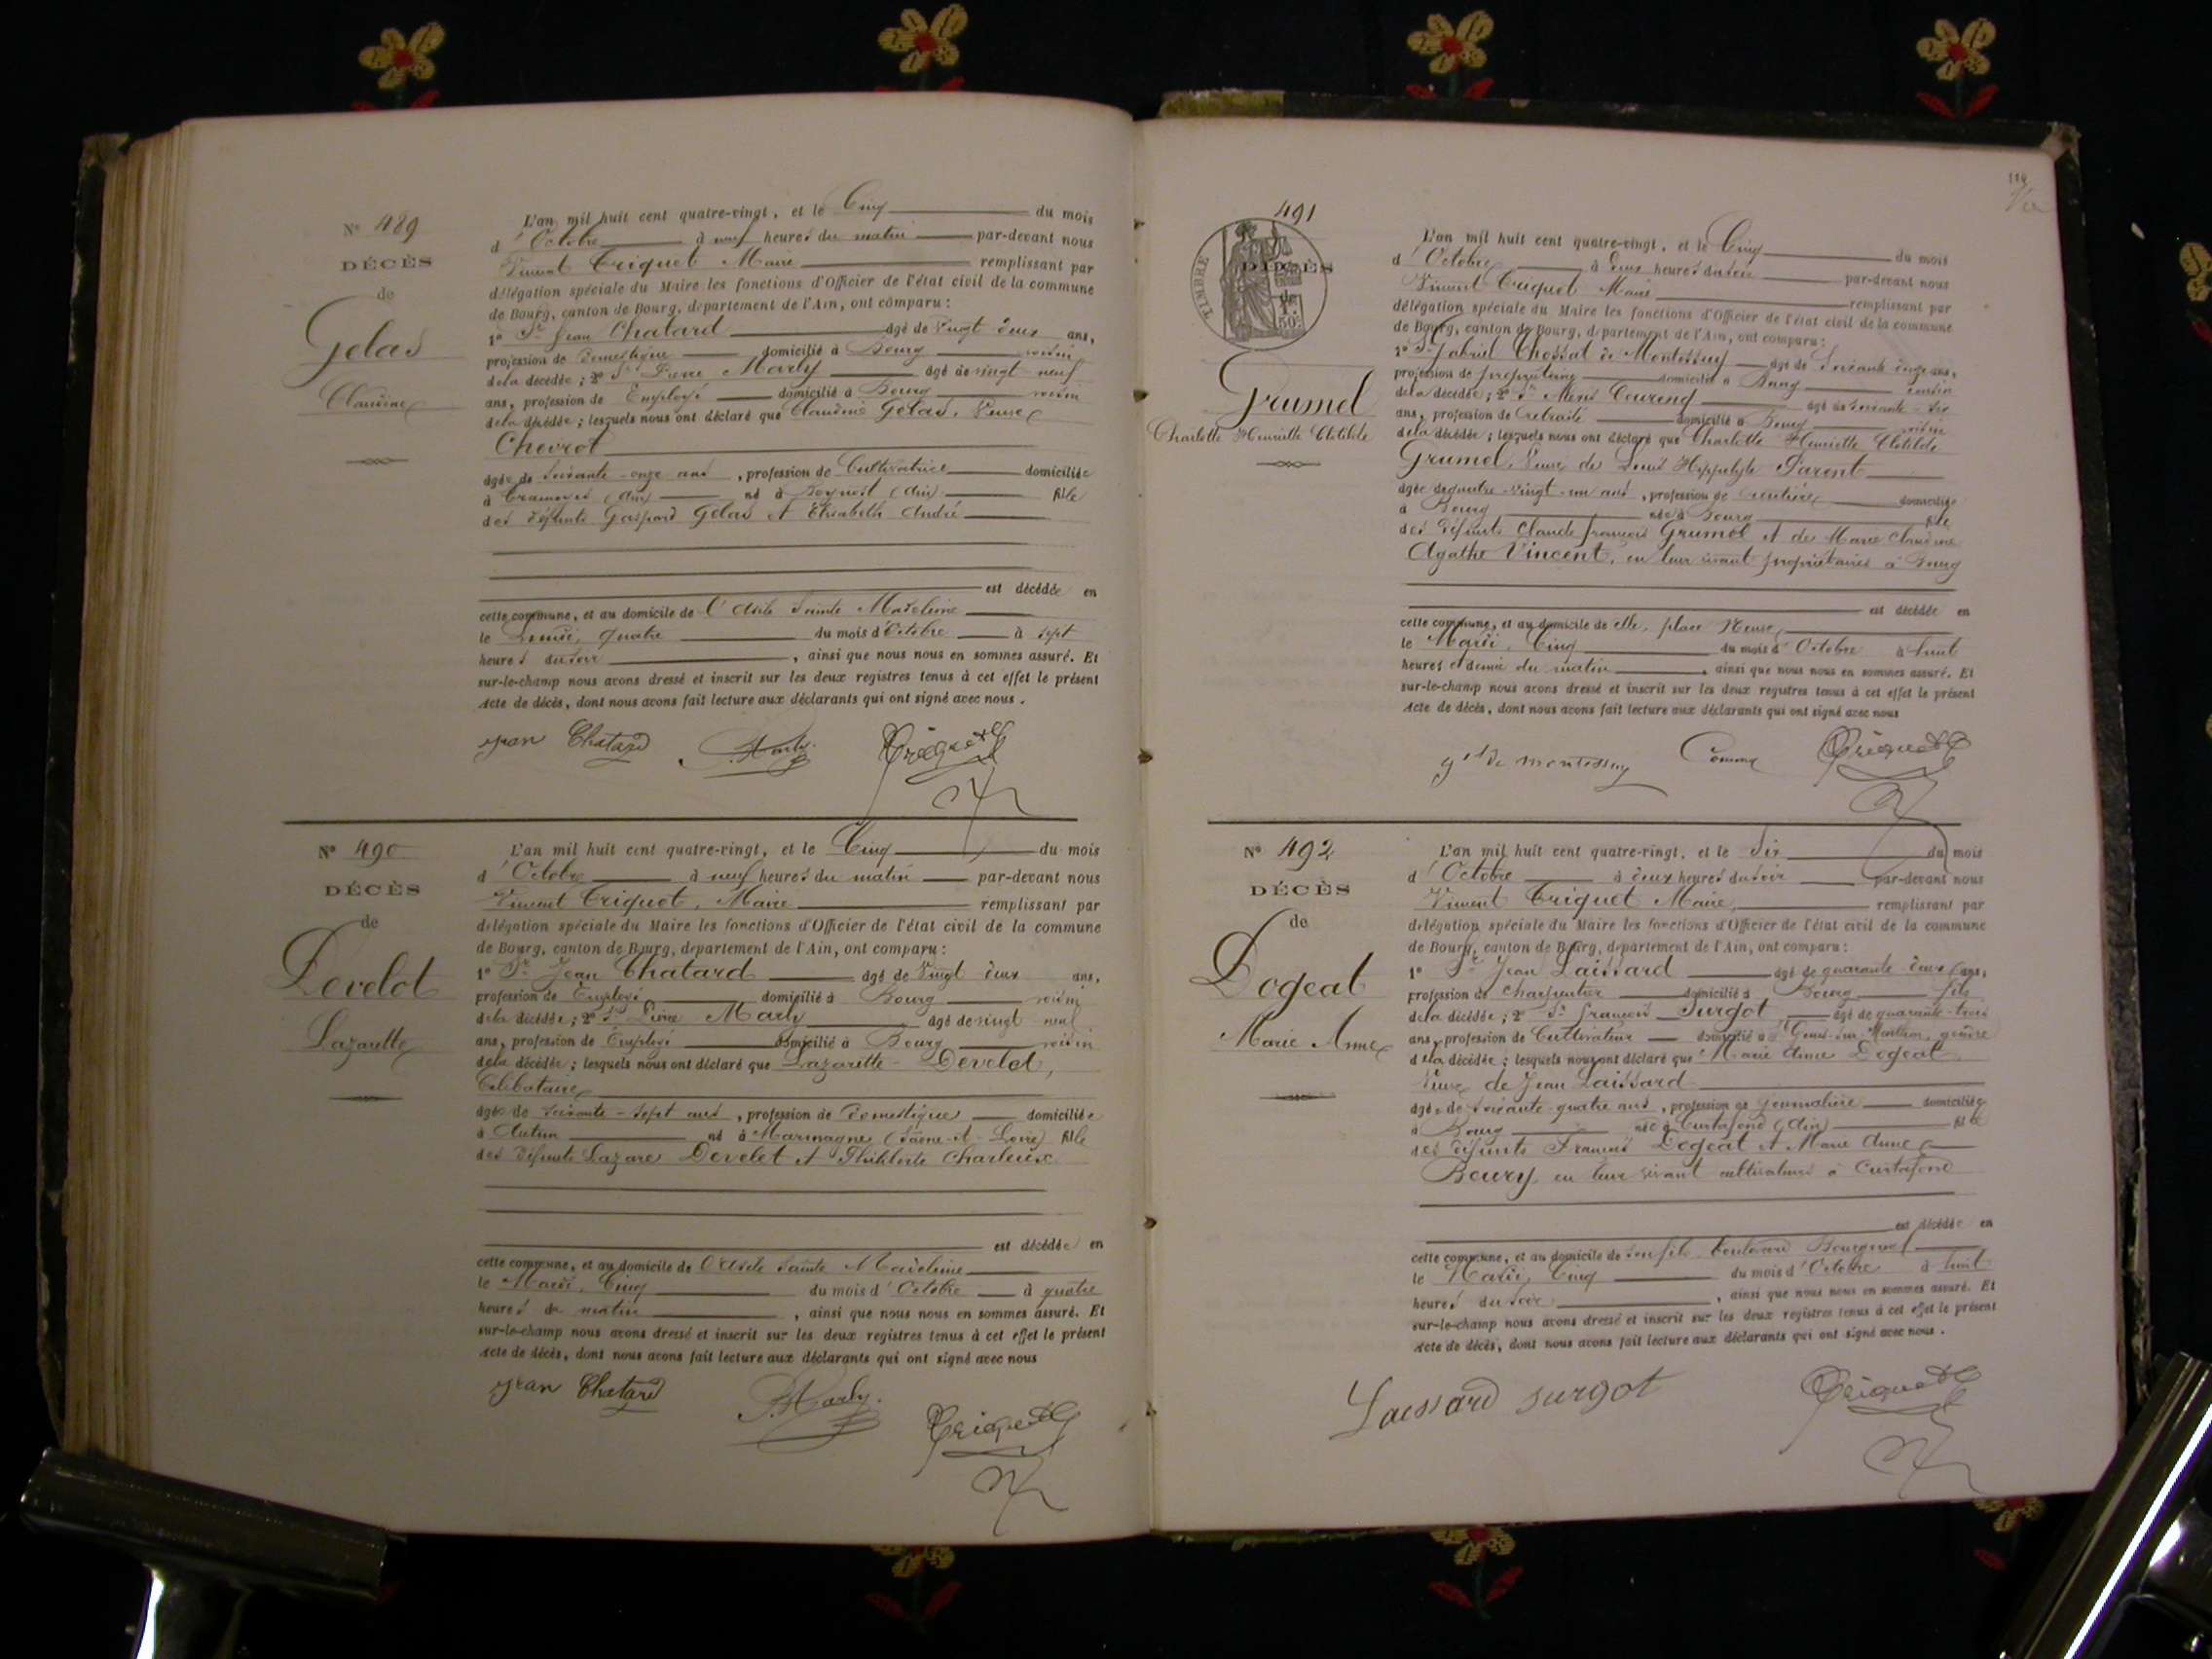 Nº 489
DÉCÈS
de
Gelas
Claudine
L'an mil huit cent quatre-vingt, et le Cinq du mois
d'Octobre à neuf heures du matin par-devant nous
Vincent Triquet Maire remplissant par
délégation spéciale du Maire les fonctions d'Officier de l'état civil de la commune
de Bourg, canton de Bourg, département de l'Ain, ont comparu :
1º Sr Jean Chatard âgé de Vingt deux ans,
profession de Domestique domicilié à Bourg voisin
de la décédée ; 2º Sr Pierre Marly âgé de vingt neuf
ans, profession de Employé domicilié à Bourg voisin
de la décédée ; lesquels nous ont déclaré que Claudine Gelas, Veuve
Chevrot
âgée de soixante-onze ans, profession de Cultivatrice domiciliée
à Tramoyes (Ain) né à Beynost (Ain) fille
des défunts Gaspard Gelas et Elisabeth André
est décédée en
cette commune, et au domicile de l'Asile Sainte Madeleine
le Lundi, quatre du mois d'Octobre à sept
heures du soir, ainsi que nous nous en sommes assuré. Et
sur-le-champ nous avons dressé et inscrit sur les deux registres tenus à cet effet le présent
Acte de décès, dont nous avons fait lecture aux déclarants qui ont signé avec nous.
Jean Chatard Marly Triquet
Nº 490
DÉCÈS
de
Develot
Lazarette
L'an mil huit cent quatre-vingt, et le Cinq du mois
d'Octobre à neuf heures du matin par-devant nous
Vincent Triquet, Maire remplissant par
délégation spéciale du Maire les fonctions d'Officier de l'état civil de la commune
de Bourg, canton de Bourg, département de l'Ain, ont comparu :
1º Sr Jean Chatard âgé de Vingt deux ans,
profession de Employé domicilié à Bourg voisin
de la décédée ; 2º Sr Pierre Marly âgé de vingt neuf
ans, profession de Employé domicilié à Bourg voisin
de la décédée ; lesquels nous ont déclaré que Lazarette Develet,
Célibataire
âgée de soixante-sept ans, profession de Domestique domiciliée
à Autun né à Marmagne (Saône-et-Loire) fille
des défunts Lazare Develet et Charleux
est décédée en
cette commune, et au domicile de l'Asile Sainte Madeleine
le Mardi, Cinq du mois d'Octobre à quatre
heures du matin, ainsi que nous nous en sommes assuré. Et
sur-le-champ nous avons dressé et inscrit sur les deux registres tenus à cet effet le présent
Acte de décès, dont nous avons fait lecture aux déclarants qui ont signé avec nous
Jean Chatard Marly. Triquet
114
491
TIMBRE
DÉCÈS
de
1F
50c
Grumel
Charlotte Henriette Clotilde
L'an mil huit cent quatre-vingt, et le Cinq du mois
d'Octobre à deux heures du soir par-devant nous
Vincent Triquet Maire remplissant par
délégation spéciale du Maire les fonctions d'Officier de l'état civil de la commune
de Bourg, canton de Bourg, département de l'Ain, ont comparu :
1º Sr Gabriel Chossat de Montessuy âgé de Soixante ans,
profession de propriétaire domicilié à Bourg cousin
de la décédée ; 2º Sr âgé de soixante-six
ans, profession de retraité domicilié à Bourg voisin
de la décédée ; lesquels nous ont déclaré que Charlotte Henriette Clotilde
Grumel, Veuve de Louis Hippolyte Parent
âgée de quatre-vingt-un ans, profession de rentière domiciliée
à Bourg née à Bourg fille
des défunts Claude François Grumel et de Marie Claudine
Agathe Vincent, en leur vivant propriétaires à Bourg
est décédée en
cette commune, et au domicile de elle, place Neuve
le Mardi, Cinq du mois d'Octobre à huit
heures et demie du matin, ainsi que nous nous en sommes assuré. Et
sur-le-champ nous avons dressé et inscrit sur les deux registres tenus à cet effet le présent
Acte de décès, dont nous avons fait lecture aux déclarants qui ont signé avec nous
de montessuy Triquet
Nº 492
DÉCÈS
de
Dogeat
Marie Anne
L'an mil huit cent quatre-vingt, et le Six du mois
d'Octobre à deux heures du soir par-devant nous
Vincent Triquet Maire, remplissant par
délégation spéciale du Maire les fonctions d'Officier de l'état civil de la commune
de Bourg, canton de Bourg, département de l'Ain, ont comparu :
1º Sr Jean Laissard âgé de quarante deux ans,
profession de Charpentier domicilié à Bourg fils
de la décédée ; 2º Sr François Surgot âgé de quarante-trois
ans, profession de Cultivateur domicilié à gendre
de la décédée ; lesquels nous ont déclaré que Marie Anne Dogeat,
Veuve de Jean Laissard
âgée de soixante-quatre ans, profession de journalière domiciliée
à Bourg née à Curtafond (Ain) fille
des défunts François Dogeat et Marie Anne
Beury en leur vivant cultivateurs à Curtafond
est décédée en
cette commune, et au domicile de son fils boulevard
le Mardi, Cinq du mois d'Octobre à huit
heures du soir, ainsi que nous nous en sommes assuré. Et
sur-le-champ nous avons dressé et inscrit sur les deux registres tenus à cet effet le présent
Acte de décès, dont nous avons fait lecture aux déclarants qui ont signé avec nous.
Laissard surgot Triquet